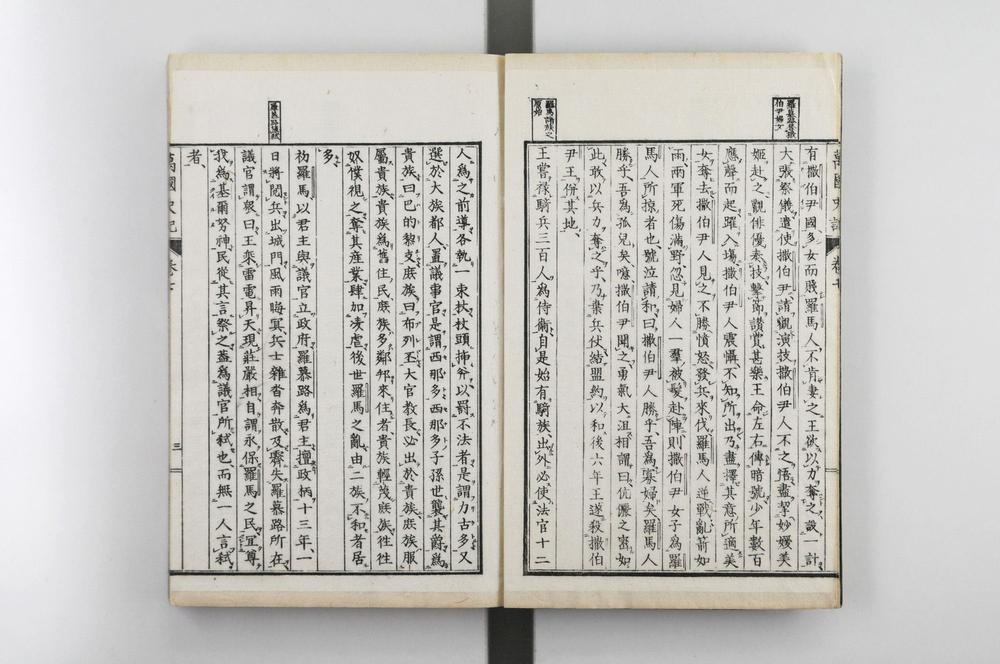 萬國史記 卷七
羅慕路奪撒
伯尹婦女
有撒伯尹國多女而賤羅馬人不肯妻之王欲以力奪之設一計
大張祭儀遣使撒伯尹請觀演技撒伯尹人不之悟盡挈妙嫚美
姬赴之觀俳優奏技擊節讚賞甚樂王命左右傳暗號少年數百
應聲而起躍入場撒伯尹人震懾不知所出乃盡擇其意所適美
女奪去撒伯尹人見之不勝憤怒發兵來伐羅馬人逆戰亂箭如
雨兩軍死傷滿野忽見婦人一羣被髮赴陣則撒伯尹女子為羅
馬人所掠者也號泣請和曰撒伯尹人勝乎吾爲寡婦矣羅馬人
勝乎吾爲孤兒矣噫撒伯尹聞之勇氣大沮相謂曰伉儷之密如
此敢以兵力奪之乎乃棄兵伏結盟約以和後六年王遂殺撒伯
尹王併其地
羅馬諸族之
原始
王嘗祿騎兵三百人爲侍衛自是始有騎族出外必使法官十二
人爲之前導各執一束扙杖頭揷斧以罰不法者是謂力古多又
選於大族都人置議事官是謂西那多西那多子孫世襲其爵爲
貴族曰巴的黎支庶族曰布列王大官教長必出於貴族庶族服
屬貴族貴族爲舊住民庶族多鄰邦來住者貴族輕蔑庶族徃徃
奴僕視之奪其産業肆加凌虐後世羅馬之亂由二族不和者居
多
初羅馬以君主與議官立政府羅慕路爲君主擅政柄十三年一
日將閱兵出城門風雨晦冥兵士雜沓奔散及霽失羅慕路所在
議官謂衆曰王乘雷電昇天現莊嚴相自謂永保羅馬之民宜尊
我爲基爾努神民從其言祭之蓋爲議官所弒也而無一人言弒
者
萬國史記 卷七
三